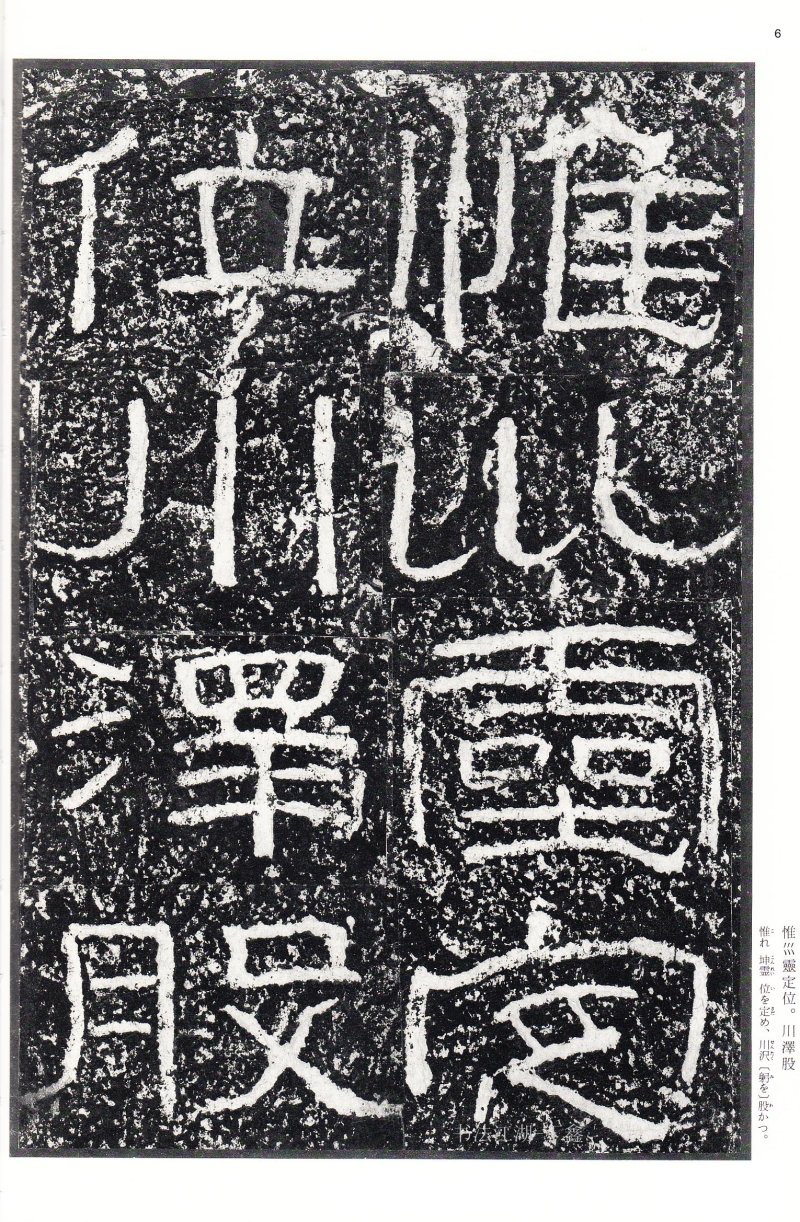 6
惟巛靈定
位川澤股
惟巛靈定位。川澤股
惟れ坤霊位を定め、川沢〔躬を〕股かつ。